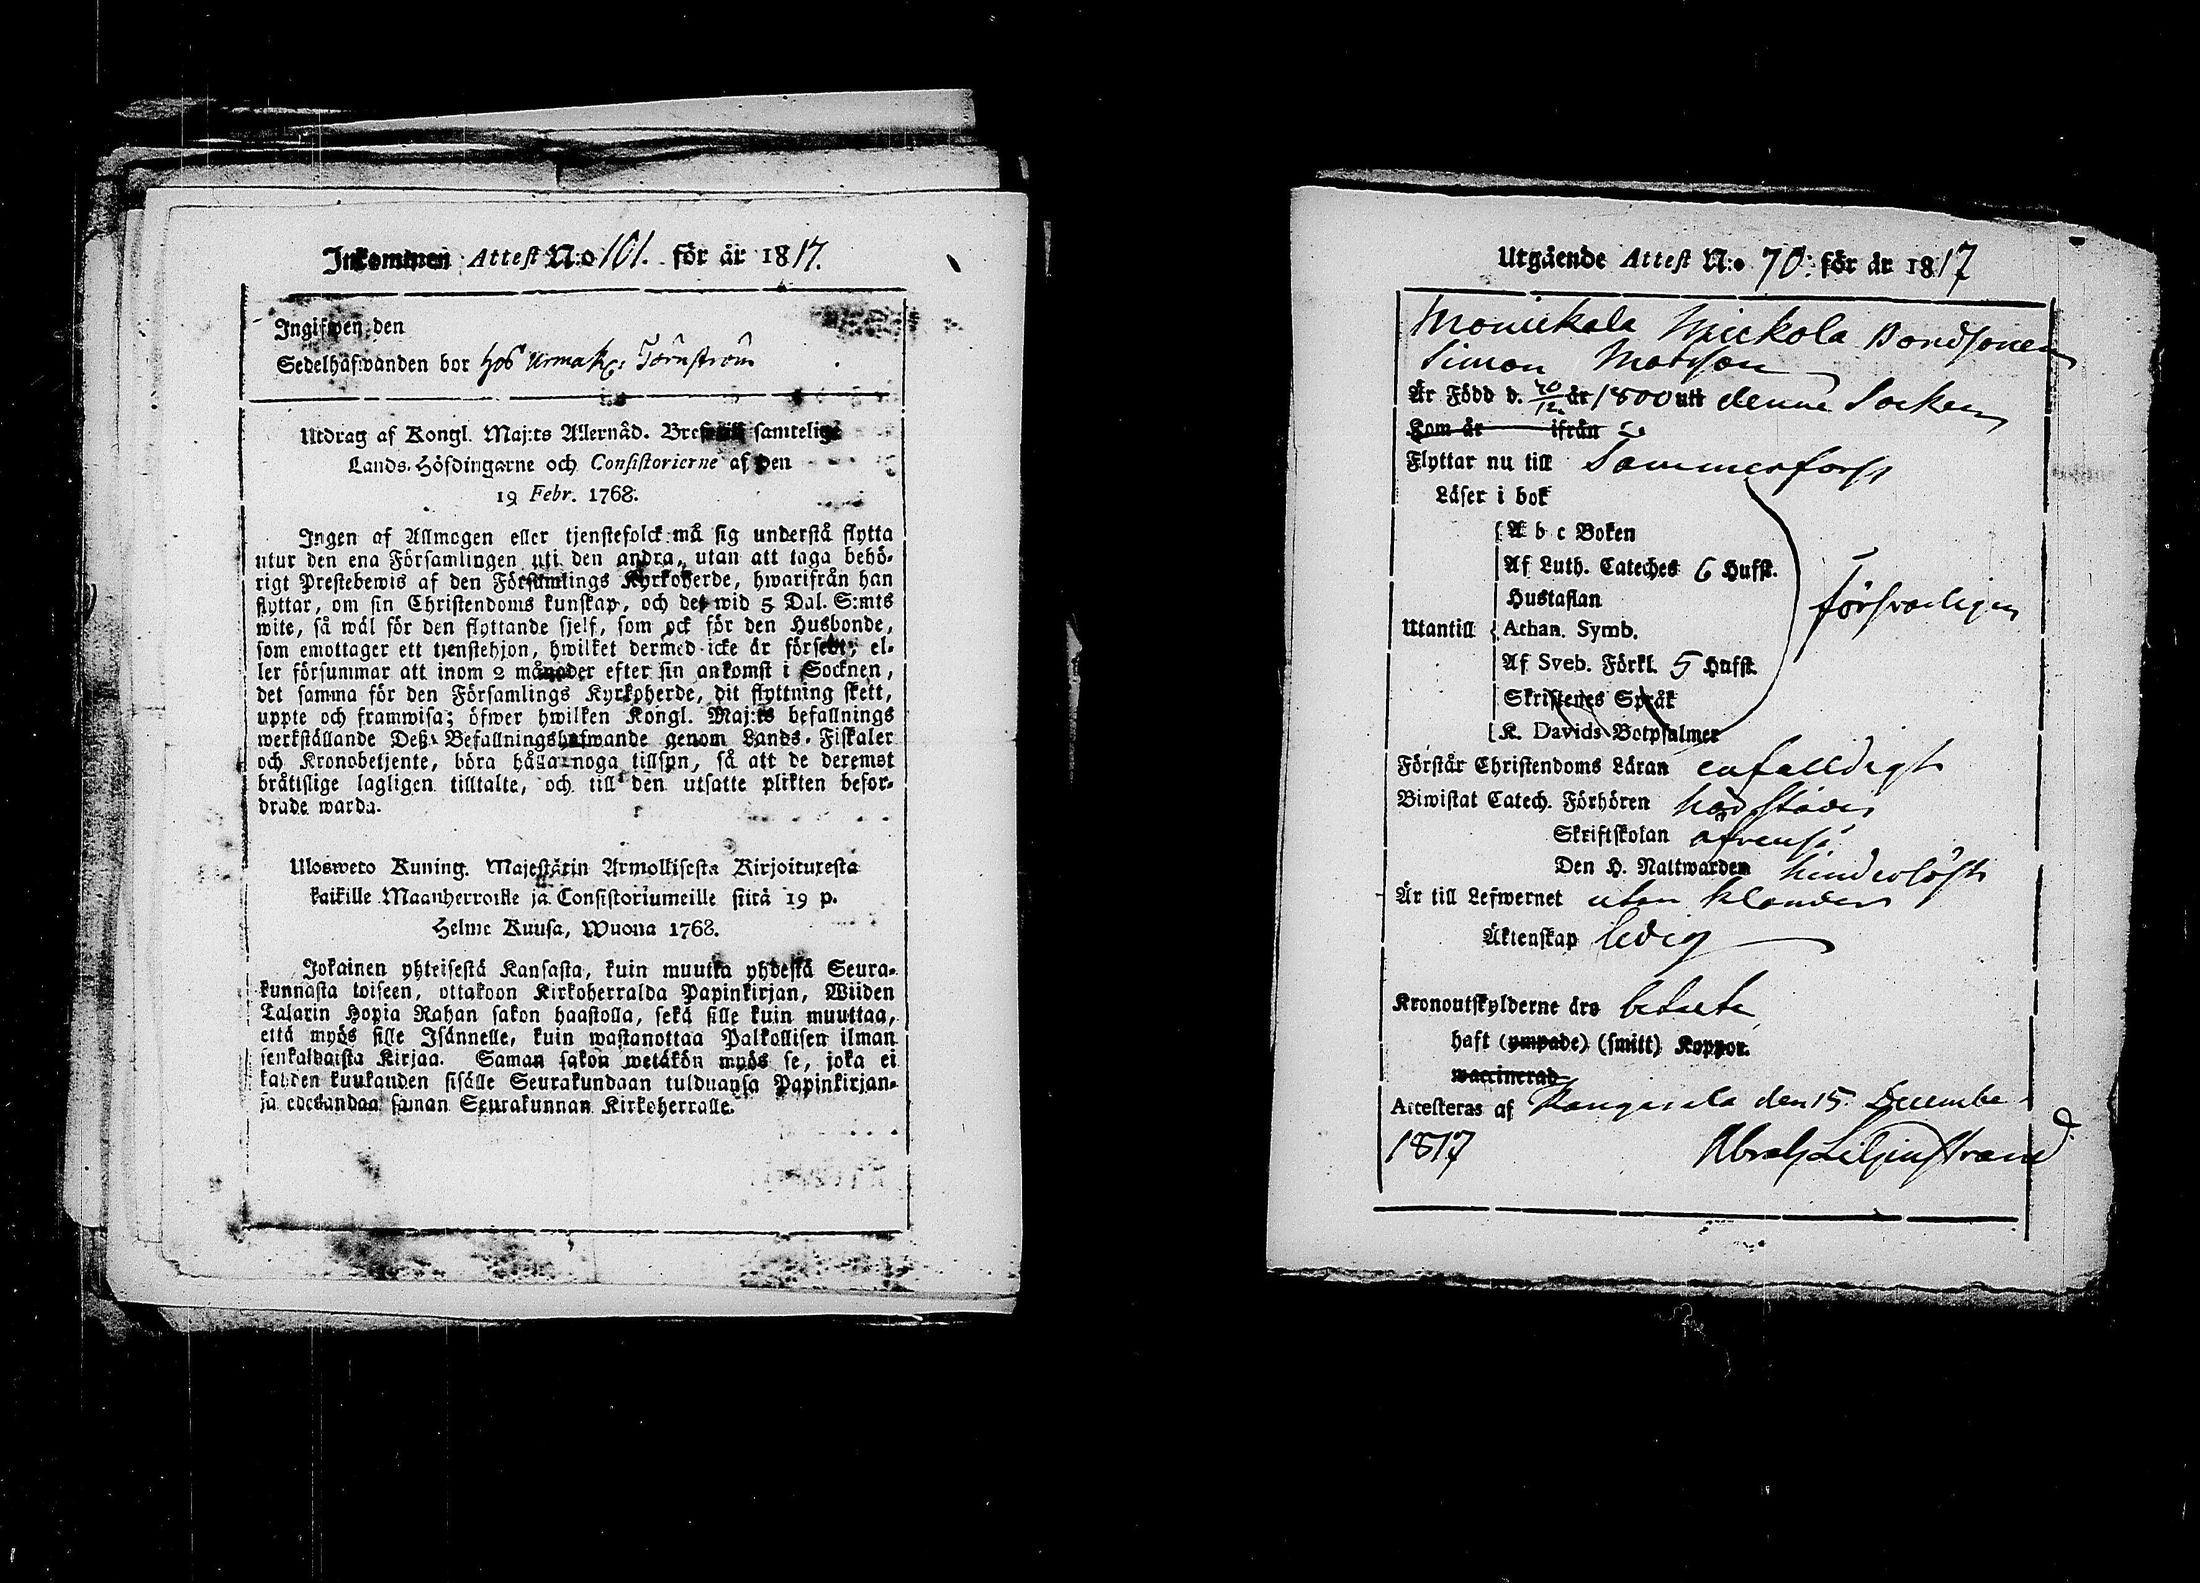 Inkommen Attest N:o 101. för år 1817.
Ingifwen den
Sedelhafwanden bor hos Urmak: Törnström
Utdrag af Kongl. Maj:ts Allernåd. Bref till samtelige
Lands-Höfdingarne och Consistorierne af den
19 Febr. 1768.
Ingen af Allmogen eller tjenstefolck må sig understå flytta
utur den ena Församlingen uti den andra, utan att taga behö-
rigt Prestebewis af den Församlings Kyrkoherde, hwarifrån han
flyttar, om sin Christendoms kunskap, och det wid 5 Dal. S:mts
wite, så wäl för den flyttande sjelf, som ock för den Husbonde,
som emottager ett tjenstehjon, hwilket dermed icke är försedt; el-
ler försummar att inom 2 månader efter sin ankomst i Socknen,
det samma för den Församlings Kyrkoherde, dit flyttning skett,
uppte och framwisa; öfwer hwilken Kongl. Maj:ts befallnings
werkställande Deß Befallningshafwande genom Lands-Fiskaler
och Kronobetjente, böra hålla noga tillsyn, så att de deremot
bråtislige lagligen tilltalte, och till den utsatte plikten befor-
drade warda.
Ulosweto Kuning. Majestätin Armollisesta Kirjoituxesta
kaikille Maanherroille ja Consistoriumeille siitä 19 p.
Helme Kuusa, Wuona 1768.
Jokainen yhteisestä Kansasta, kuin muutta yhdestä Seura-
kunnasta toiseen, ottakoon Kirkoherralda Papinkirjan, Wiiden
Talarin Hopia Rahan sakon haastolla, sekä sille kuin muuttaa,
että myös sille Isännelle, kuin wastanottaa Palkollisen ilman
senkaldaista Kirjaa. Saman sakon wetäkön myös se, joka ei
kahden kuukauden sisälle Seurakundaan tulduansa Papinkirjan-
sa edesandaa saman Seurakunnan Kirkoherralle.
Utgående Attest N:o 70: för år 1817
Mickola Bondsonen
Simon Matsson
Är Född d. 20/12 år 1800 uti denne Socken
Kom år ifrån
Flyttar nu till Tammerfors
Läser i bok
A b c Boken
Af Luth. Cateches 6 Hufst.
Hustaflan
Utantill Athan. Symb.
Af Sveb. Förkl. 5 Hufst.
Skriftenes Språk
K. Davids Botpsalmer
Försvarligen
Förstår Christendoms Läran enfalldigt
Biwistat Catech. Förhören
Skriftskolan afvenså
Den H. Nattwarden hinderlöst
Är till Lefwernet utan klander
Äktenskap ledig
Kronoutskylderne äro betalte
haft (ympade) (smitt) Koppor.
waccinerad
Attesteras af Kangasala den 15 December
1817 Abrah Liljenstrand